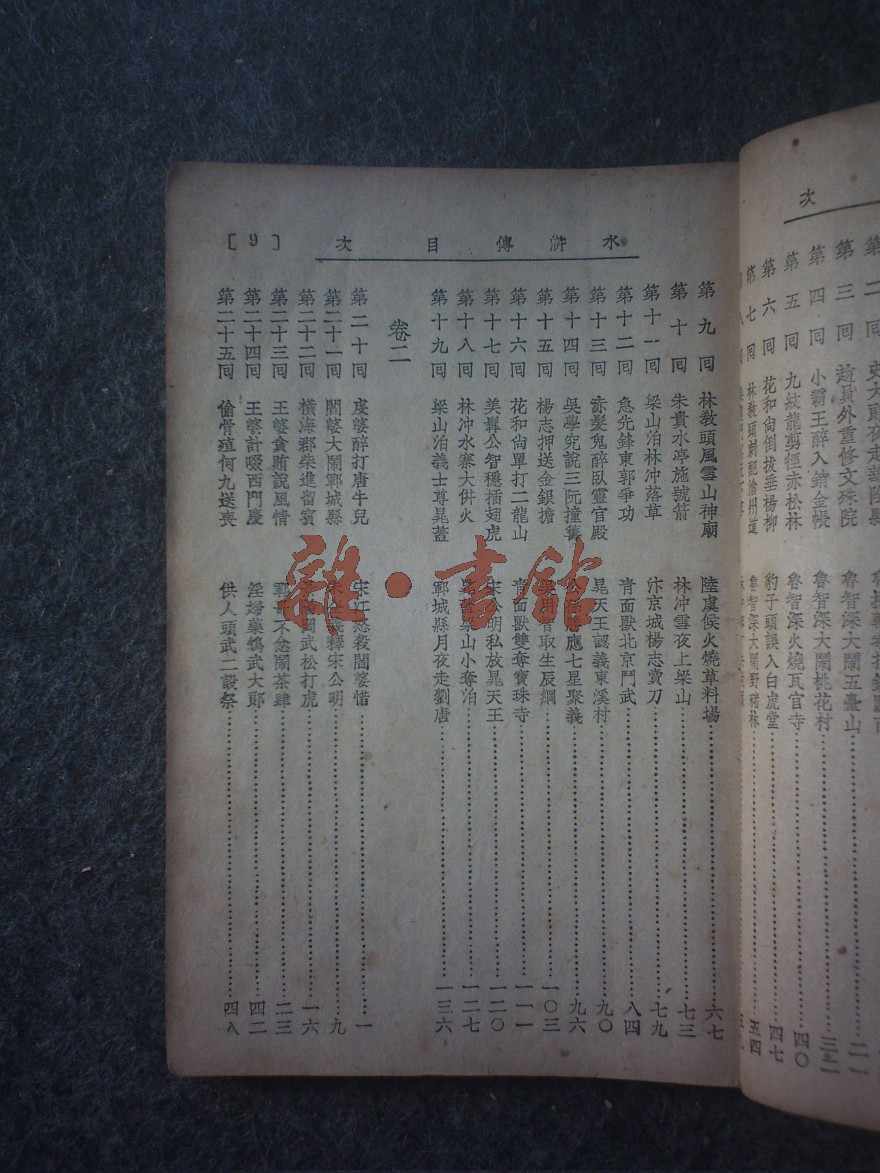 次
第三回 趙員外重修文殊院 魯智深大鬧五臺山
第四回 小霸王醉入銷金帳 魯智深大鬧桃花村 三二
第五回 九紋龍剪徑赤松林 魯智深火燒瓦官寺 四〇
第六回 花和尙倒拔垂楊柳 豹子頭誤入白虎堂 四七
第七回 林敎頭刺配滄州道 魯智深大鬧野猪林 五四
水滸傳目次 [9]
第九回 林敎頭風雪山神廟 陸虞侯火燒草料場 六七
第十回 朱貴水亭施號箭 林冲雪夜上梁山 七三
第十一回 梁山泊林冲落草 汴京城楊志賣刀 七九
第十二回 急先鋒東郭爭功 靑面獸北京鬥武 八四
第十三回 赤髮鬼醉臥靈官殿 晁天王認義東溪村 九〇
第十四回 吳學究說三阮撞籌 應七星聚義 九六
第十五回 楊志押送金銀擔 取生辰綱 一〇三
第十六回 花和尙單打二龍山 靑面獸雙奪寶珠寺 一一一
第十七回 美髯公智穩揷翅虎 宋公明私放晁天王 一二〇
第十八回 林冲水寨大併火 山小奪泊 一二七
第十九回 梁山泊義士尊晁蓋 鄆城縣月夜走劉唐 一三六
卷二
第二十回 虔婆醉打唐牛兒 宋江怒殺閻婆惜 一
第二十一回 閻婆大鬧鄆城縣 釋宋公明 九
第二十二回 橫海郡柴進留賓 武松打虎 一六
第二十三回 王婆貪賄說風情 鄆哥不忿鬧茶肆 二三
第二十四回 王婆計啜西門慶 淫婦藥鴆武大郎 四二
第二十五回 偸骨殖何九送喪 供人頭武二設祭 四八
書館